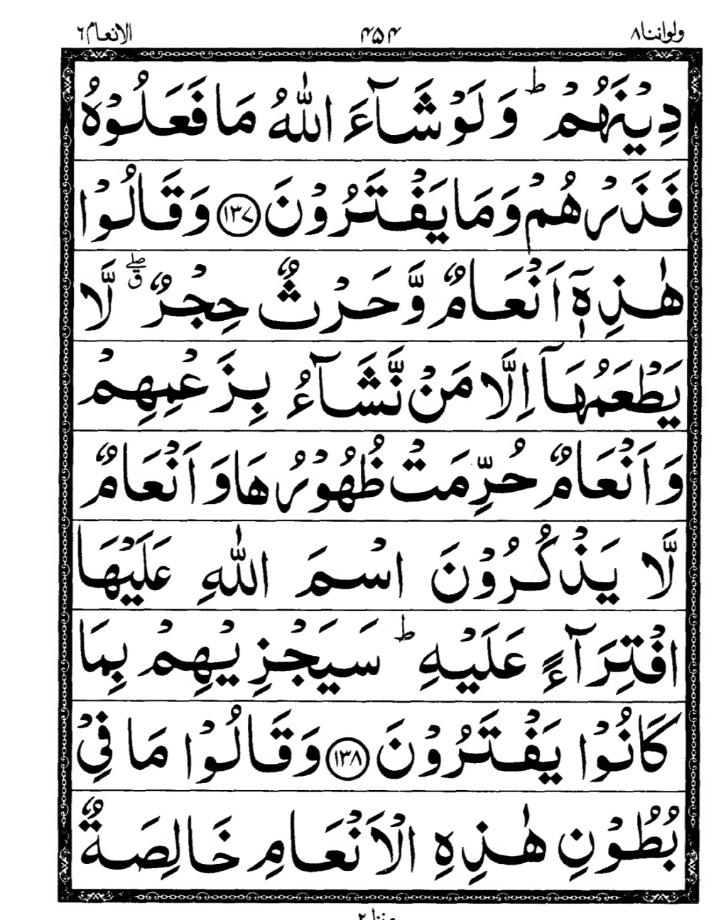 ولواننا ٨ ۴۵۴ الانعام ٦
دِيْنَهُمْ ؕ وَلَوْ شَآءَ اللّٰهُ مَا فَعَلُوْهُ
فَذَرْهُمْ وَمَا يَفْتَرُوْنَ ﴿۱۳۷﴾ وَقَالُوْا
هٰذِهٖۤ اَنْعَامٌ وَّحَرْثٌ حِجْرٌ ۖق لَّا
يَطْعَمُهَاۤ اِلَّا مَنْ نَّشَآءُ بِزَعْمِهِمْ
وَاَنْعَامٌ حُرِّمَتْ ظُهُوْرُهَا وَاَنْعَامٌ
لَّا يَذْكُرُوْنَ اسْمَ اللّٰهِ عَلَيْهَا
افْتِرَآءً عَلَيْهِ ؕ سَيَجْزِيْهِمْ بِمَا
كَانُوْا يَفْتَرُوْنَ ﴿۱۳۸﴾ وَقَالُوْا مَا فِيْ
بُطُوْنِ هٰذِهِ الْاَنْعَامِ خَالِصَةٌ